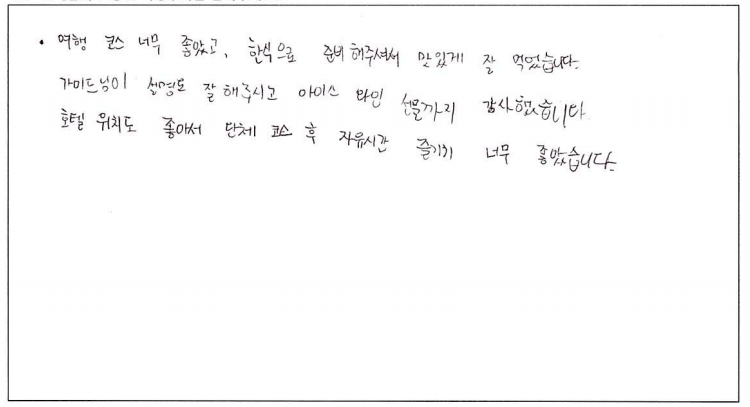 • 여행 코스 너무 좋았고, 한식으로 준비해주셔서 맛있게 잘 먹었습니다.
가이드님이 설명도 잘 해주시고 아이스 와인 선물까지 감사했습니다
호텔 위치도 좋아서 단체 코스 후 자유시간 즐기기 너무 좋았습니다.